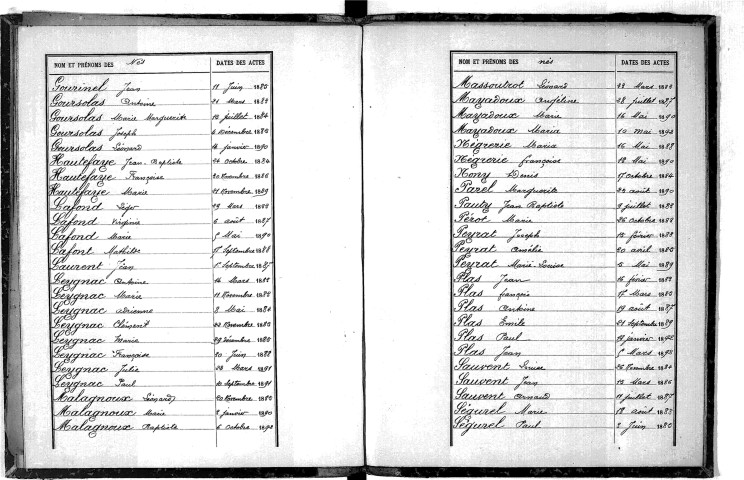 NOM ET PRÉNOMS DES Nés DATES DES ACTES
Gourinel Jean 11 Juin 1883
Goursolas Antoine 21 Mars 1882
Goursolas Marie Marguerite 12 juillet 1884
Goursolas Joseph 6 Décembre 1885
Goursolas Léonard 14 janvier 1890
Hautefaye Jean-Baptiste 24 Octobre 1884
Hautefaye Françoise 20 Novembre 1886
Hautefaye Marie 21 Novembre 1889
Lafond 23 Mars 1888
Lafond Virginie 6 août 1887
Lafond Marie 5 Mai 1890
Lafont Mathilde Septembre 1888
Laurent Jean Septembre 1887
Leygnac Antoine 14 Mars 1882
Leygnac Marie 11 Novembre 1882
Leygnac Adrienne 8 Mai 1884
Leygnac Clément 22 Novembre 1885
Leygnac Maria 29 Décembre 1885
Leygnac Françoise 20 Juin 1888
Leygnac Julie 23 Mars 1891
Leygnac Paul 10 Septembre 1891
Malagnoux Léonard 20 Novembre 1883
Malagnoux Marie 2 janvier 1890
Malagnoux Baptiste 6 Octobre 1892
NOM ET PRÉNOMS DES nés DATES DES ACTES
Massoutrot Léonard 29 Mars
Mayadoux Angéline 28 juillet 1887
Mayadoux Marie 16 Mai 1890
Mayadoux Maria 10 Mai
Négrerie Maria 16 Mai 1888
Négrerie françoise 12 Mai 1890
Nony Denis 17 Octobre 1884
Parel Marguerite 23 août 1890
Pauty Jean Baptiste 9 juillet 1888
Pérot Marie 26 Octobre 1888
Peyrat Joseph 12 février 1883
Peyrat Amélie 20 avril 1885
Peyrat Marie-Louise 5 Mai 1889
Plas Jean 16 février
Plas françois 17 Mars 1885
Plas Antoine 19 août 1887
Plas Emile 21 Septembre 1889
Plas Paul 19 janvier 1892
Plas Jean 5 Mars
Sauvent Louise 26 Novembre 1884
Sauvent Jean 13 Mars 1886
Sauvent Arnaud 11 juillet 1887
Ségurel Marie 18 août 1883
Ségurel Paul 2 Juin 1885